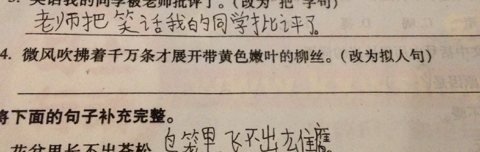 3. 笑话我的同学被老师批评了。(改为“把”字句)
老师把笑话我的同学批评了。
4. 微风吹拂着千万条才展开带黄色嫩叶的柳丝。(改为拟人句)
将下面的句子补充完整。
花盆里长不出苍松,鸟笼里飞不出雄鹰。